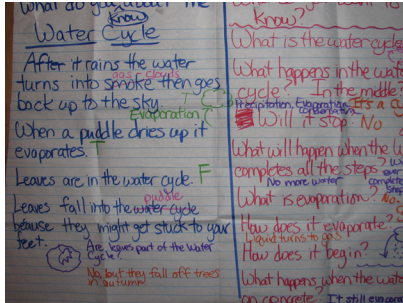 What do you know about the
Water Cycle
After it rains the water
gas-clouds
turns into smoke then goes
back up to the sky.
Evaporation
When a puddle dries up it
evaporates. T
Leaves are in the water cycle. F
puddle
Leaves fall into the water cycle
because they might get stuck to your
feet.
Are leaves part of the water
cycle?
No, but they fall off trees
in autumn
know?
What is the water cycle
What happens in the wat
cycle? In the middle?
Precipitation, Evaporation
condensation
It's a
Will it stop. No
What will happen when the w
completes all the steps?
No more water
complete
What is evaporation?
How does it evaporate?
Liquid turns to gas
How does it begin?
What happens when the wat
on concrete?
It still evapora